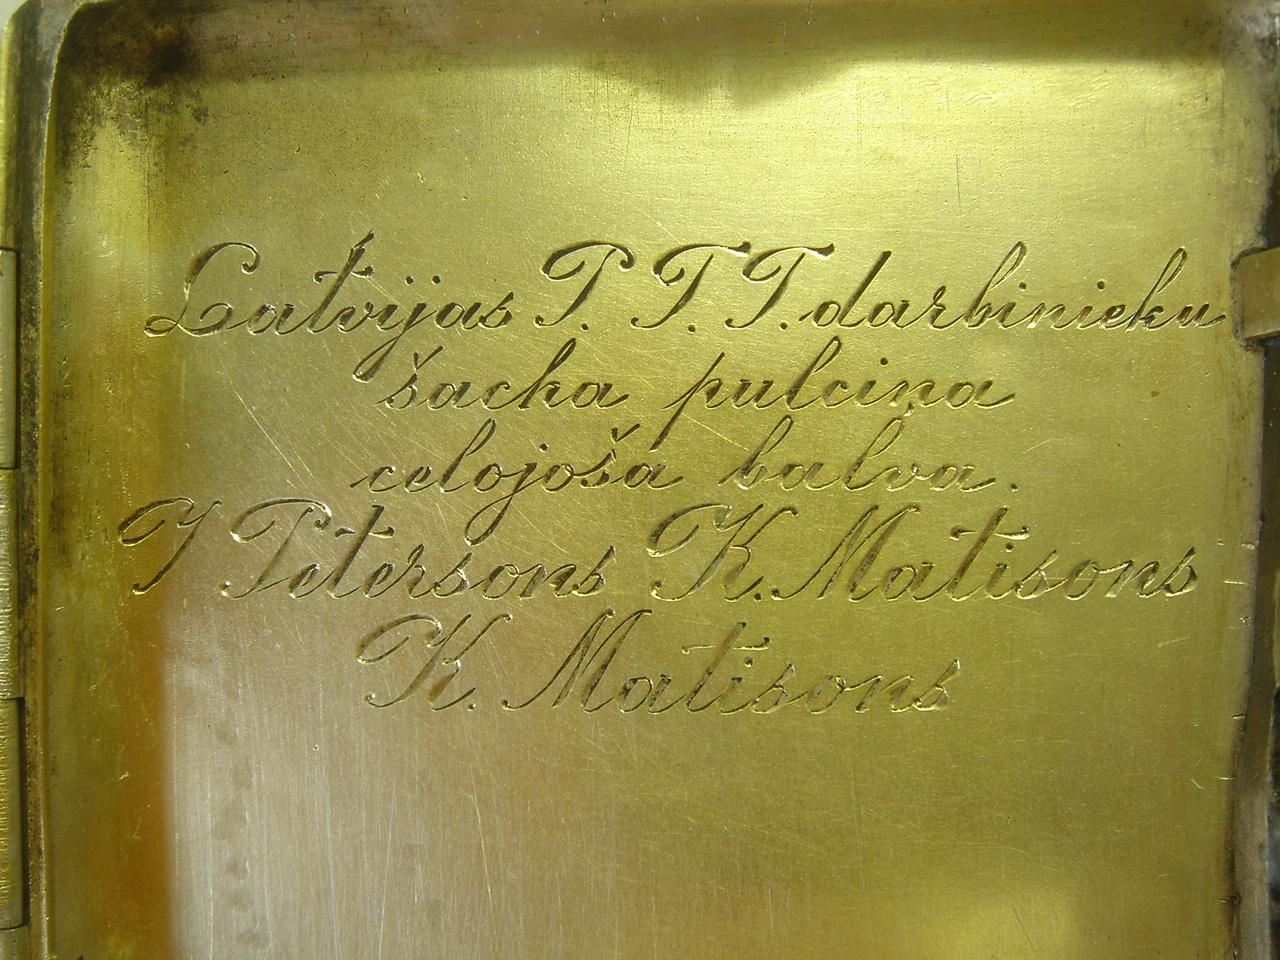 Latvijas P. T. T. darbinieku
šacha pulciņa
celojoša balva.
J Petersons K. Matisons
K. Matisons